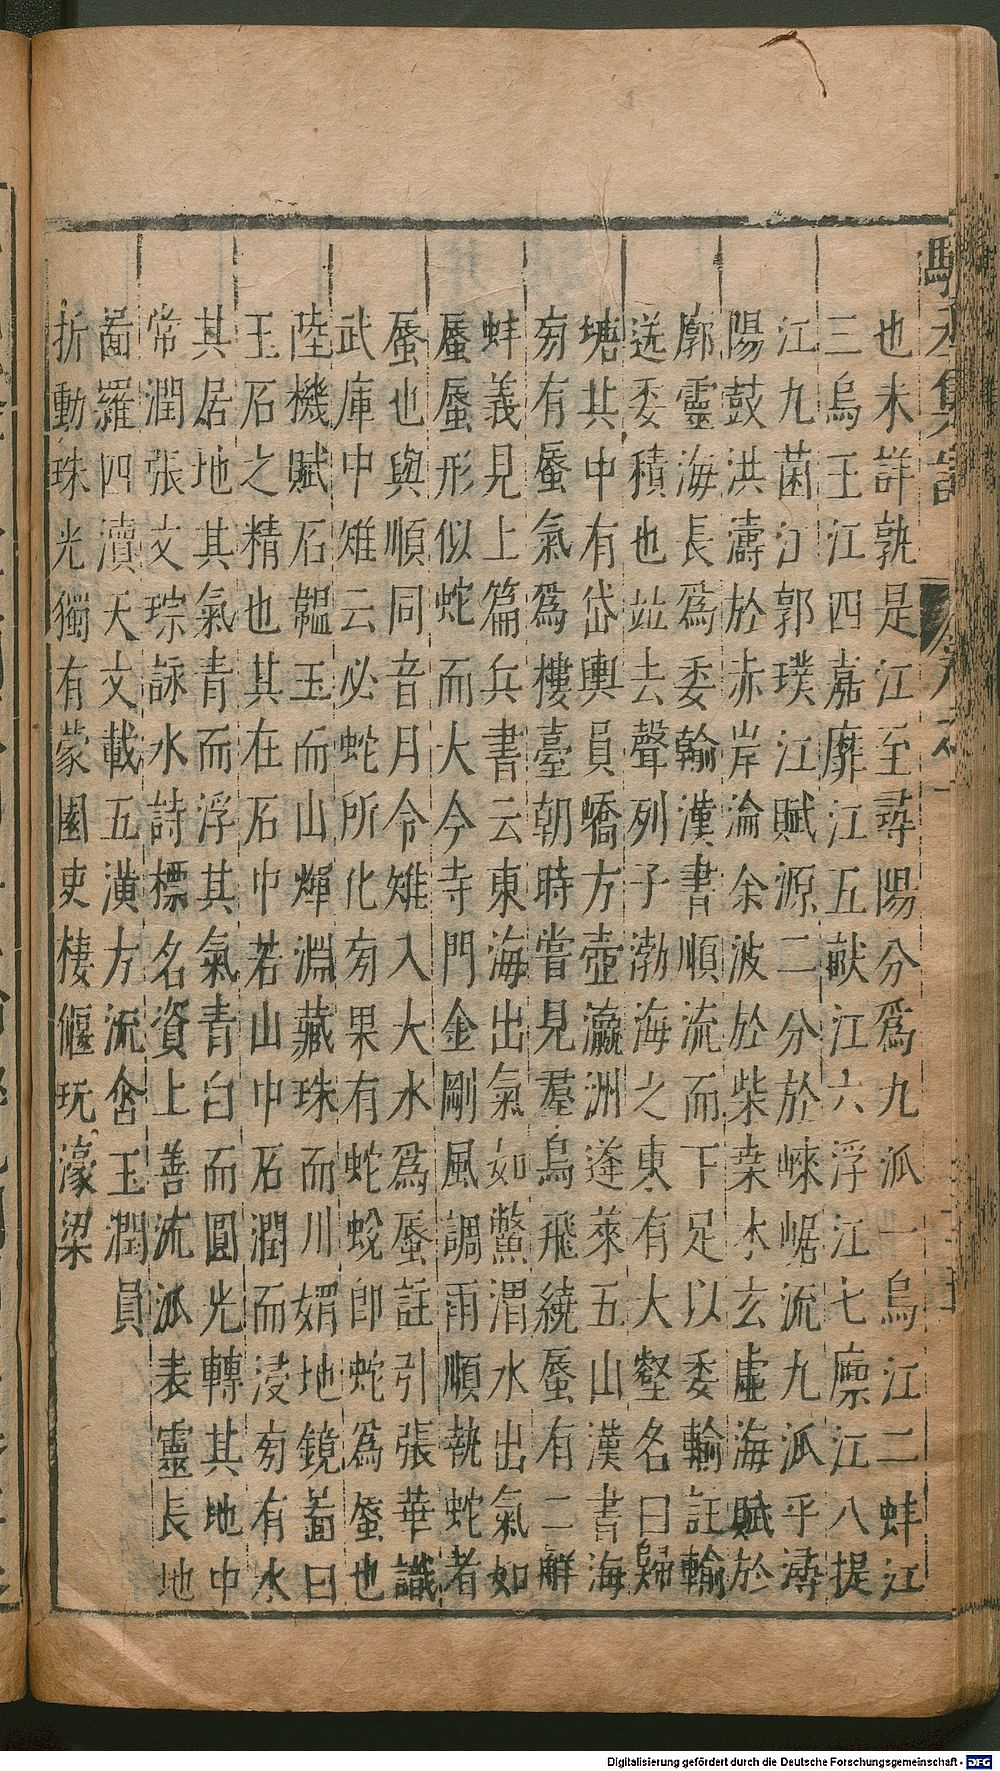 也未詳孰是江至尋陽分爲九派一烏江二蚌江
三烏王江四嘉靡江五畎江六浮江七廩江八提
江九菌江郭璞江賦源二分於崍崌流九派乎潯
陽鼓洪濤於赤岸淪余波於柴桑木玄虛海賦於
廓靈海長爲委輸漢書順流而下足以委輸註輸
送委積也竝去聲列子渤海之東有大壑名曰歸
塘其中有岱輿員嶠方壺瀛洲蓬萊五山漢書海
旁有蜃氣爲樓臺朝時嘗見羣烏飛繞蜃有二觧
蚌義見上篇兵書云東海出氣如鱉渭水出氣如
蜃蜃形似蛇而大今寺門金剛風調雨順執蛇者
蜃也與順同音月令雉入大水爲蜃註引張華識
武庫中雉云必蛇所化旁果有蛇蛻郎蛇爲蜃也
陸機賦石韞玉而山煇淵藏珠而川媚地鏡啚曰
玉石之精也其在石中若山中石潤而浸旁有水
其居地其氣青而浮其氣青白而圓光轉其地中
常潤張文琮詠水詩標名資上善流派表靈長地
啚羅四瀆天文載五潢方流含玉潤員
折動珠光獨有蒙園吏棲偃玩濠梁